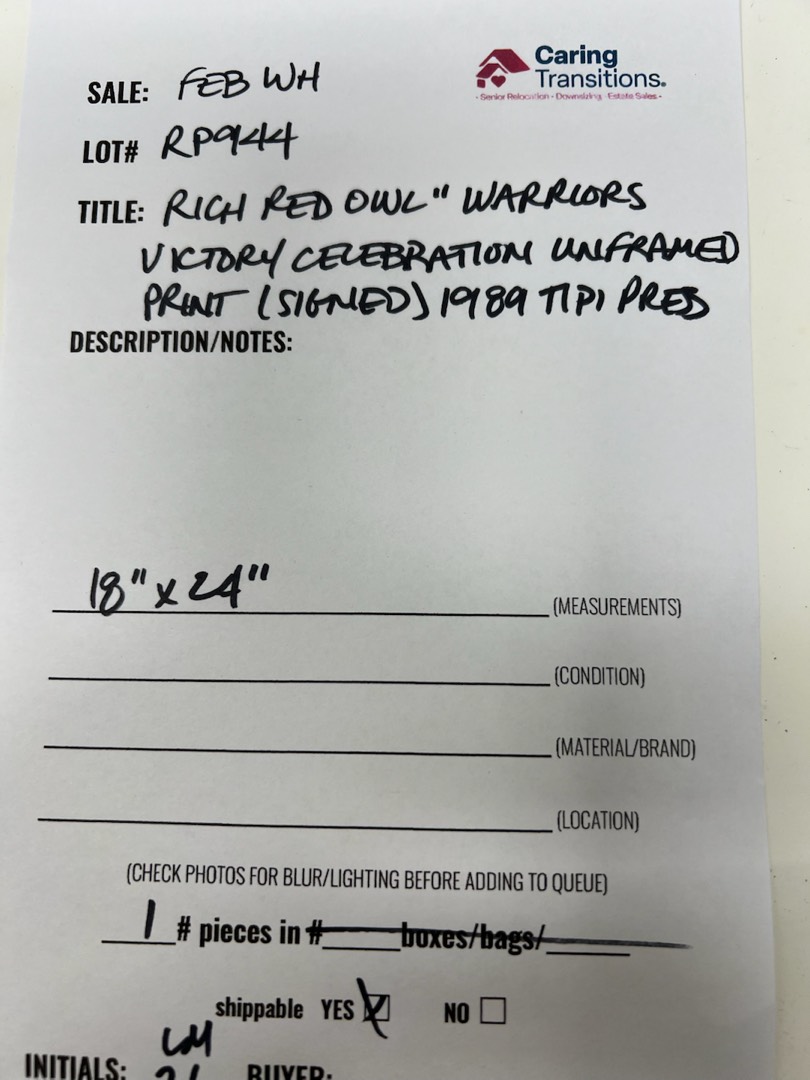 Caring
Transitions®
• Senior Relocation • Downsizing • Estate Sales •
SALE: FEB WH
LOT# RP944
TITLE: RICH RED OWL " WARRIORS
VICTORY CELEBRATION UNFRAMED
PRINT (SIGNED) 1989 TIPI PRESS
DESCRIPTION/NOTES:
18" x 24" (MEASUREMENTS)
(CONDITION)
(MATERIAL/BRAND)
(LOCATION)
(CHECK PHOTOS FOR BLUR/LIGHTING BEFORE ADDING TO QUEUE)
1 # pieces in # boxes/bags/
shippable YES NO
INITIALS: LM BUYER: